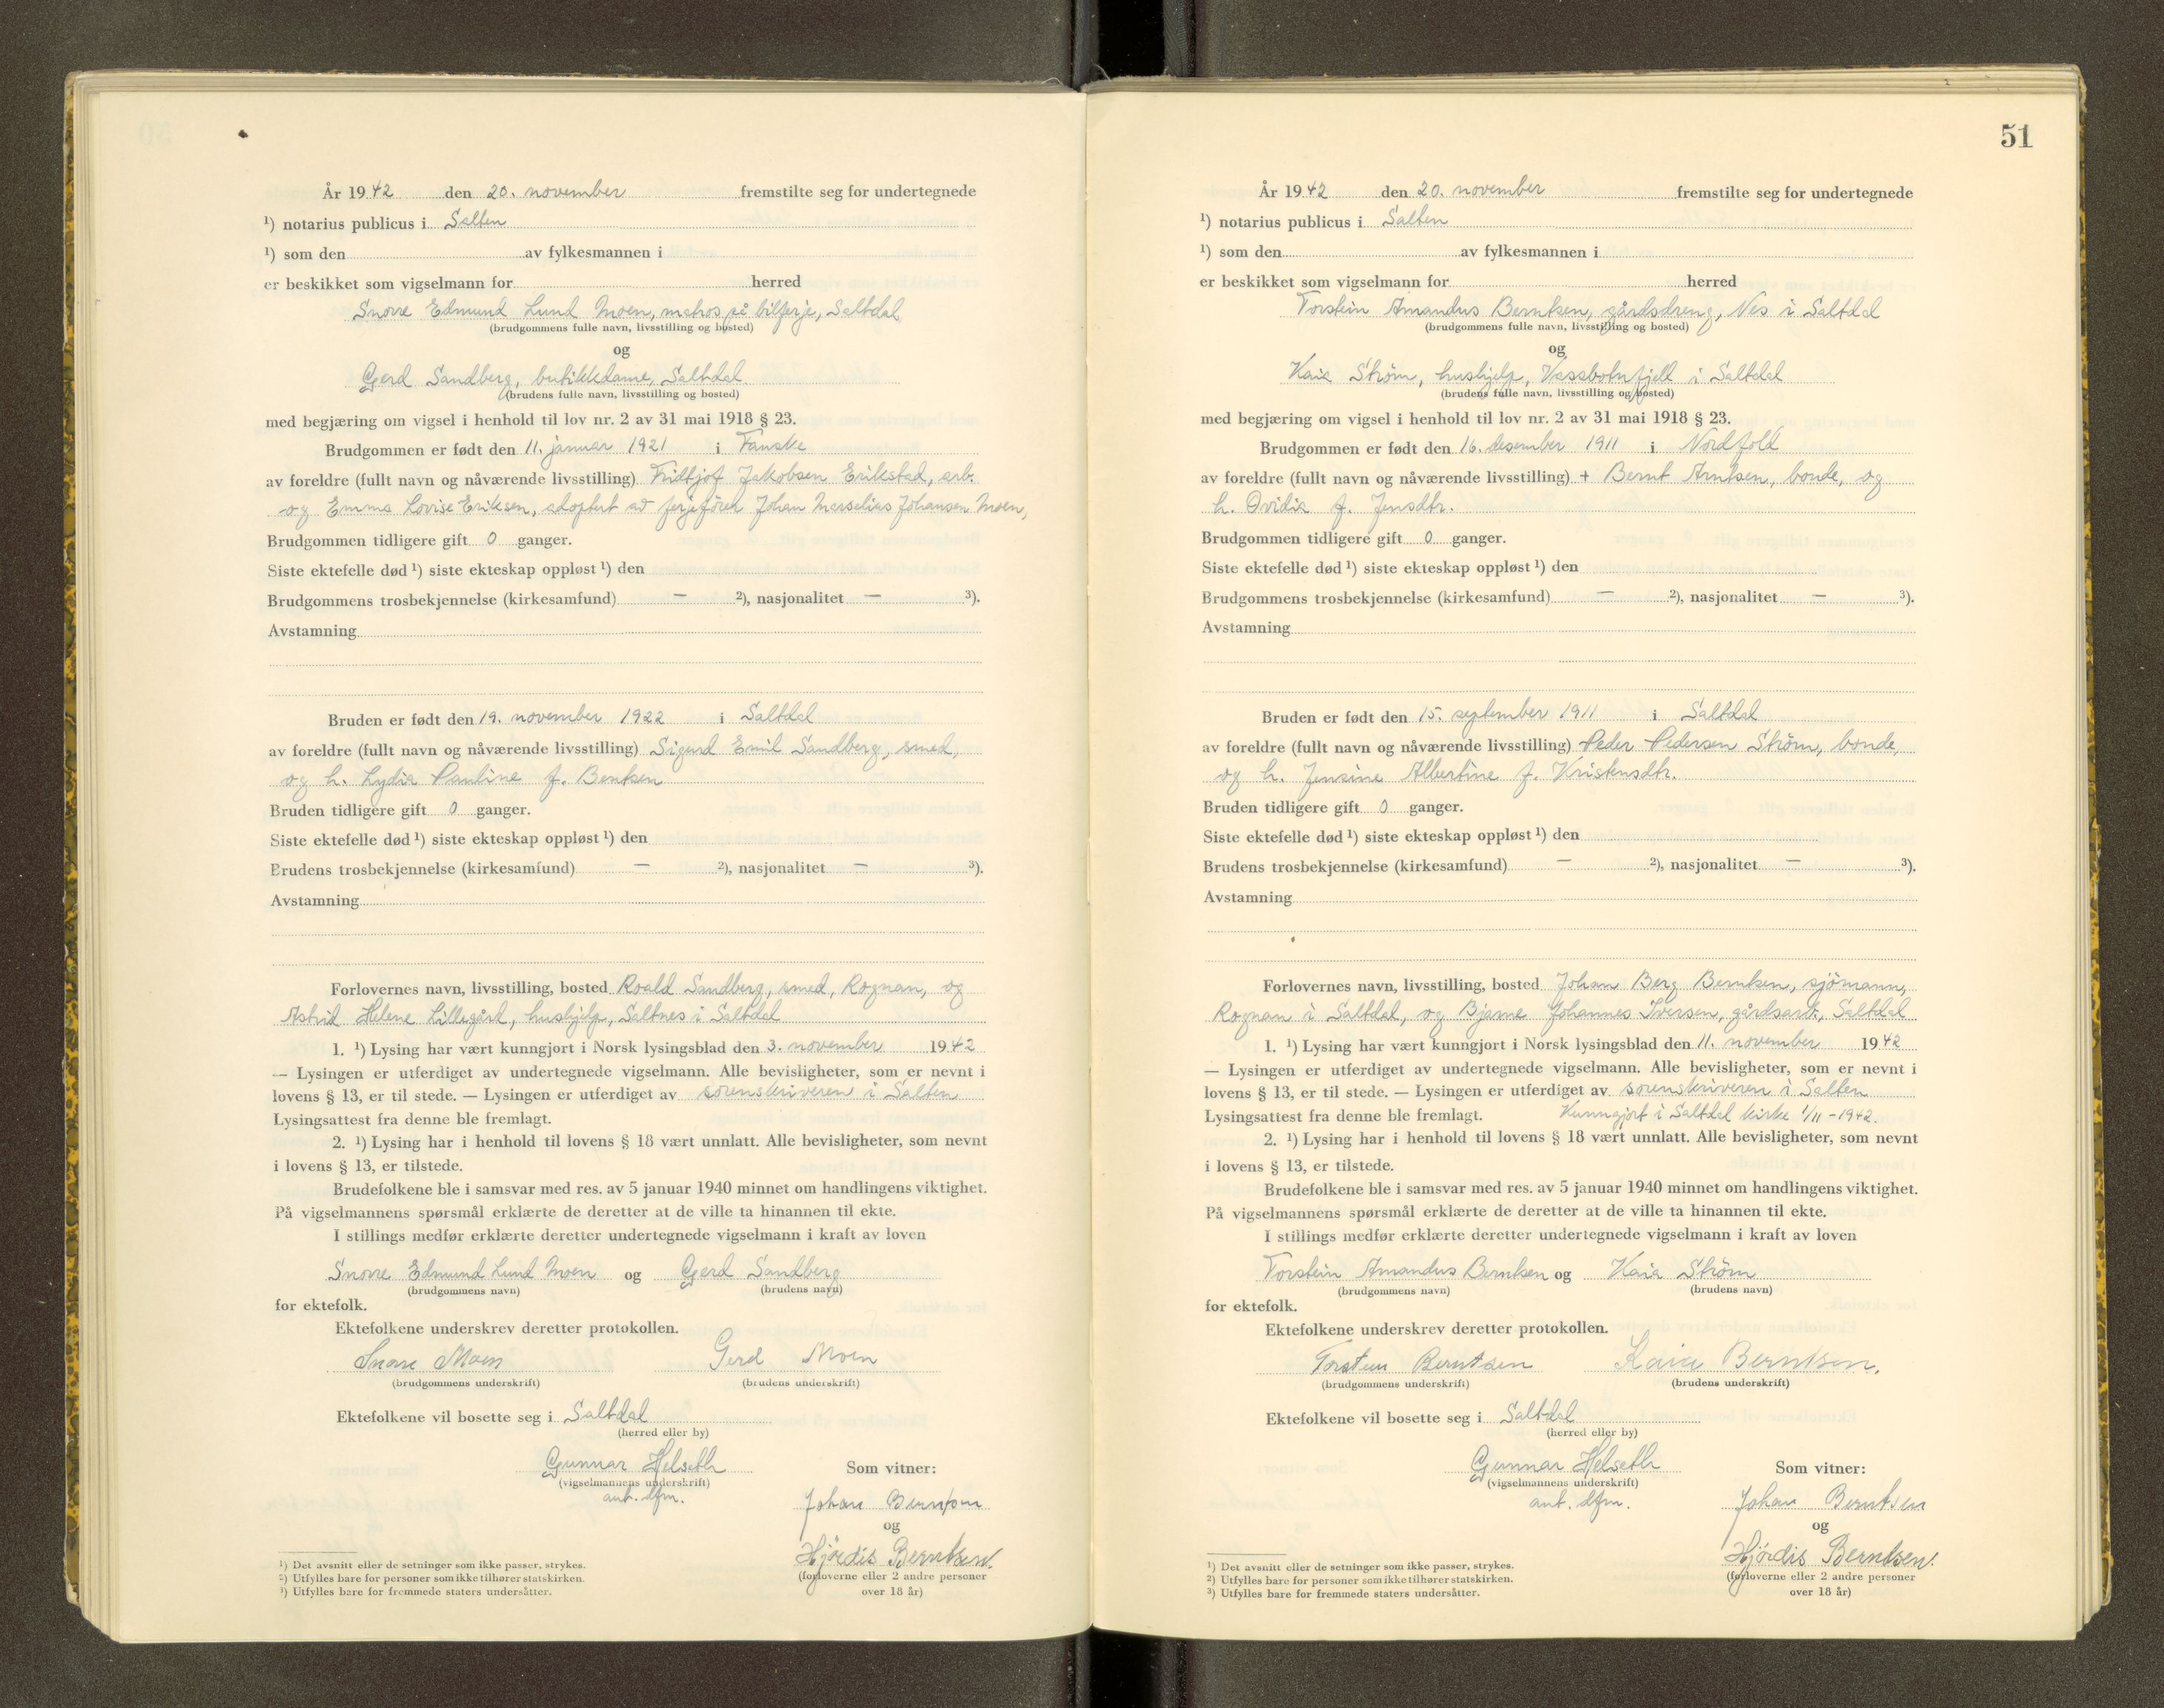 År 1942 den 20. november fremstilte seg for undertegnede
¹) notarius publicus i Salten
¹) som den av fylkesmannen i
er beskikket som vigselmann for herred
Snorre Edmund Lund Moen, matros på bilferje, Saltdal
(brudgommens fulle navn, livsstilling og bosted)
og
Gerd Sandberg, butikkdame, Saltdal
(brudens fulle navn, livsstilling og bosted)
med begjæring om vigsel i henhold til lov nr. 2 av 31 mai 1918 § 23.
Brudgommen er født den 11. januar 1921 i Fauske
av foreldre (fullt navn og nåværende livsstilling) Fridtjof Jakobsen Erikstad, arb.
og Emma Lovise Eriksen, adoptert av ferjefører Johan Marselius Johansen Moen,
Brudgommen tidligere gift 0 ganger.
Siste ektefelle død ¹) siste ekteskap oppløst ¹) den
Brudgommens trosbekjennelse (kirkesamfund) — ²), nasjonalitet — ³).
Avstamning
Bruden er født den 19. november 1922 i Saltdal
av foreldre (fullt navn og nåværende livsstilling) Sigurd Emil Sandberg, smed,
og h. Lydia Pauline f. Bentsen
Bruden tidligere gift 0 ganger.
Siste ektefelle død ¹) siste ekteskap oppløst ¹) den
Brudens trosbekjennelse (kirkesamfund) — ²), nasjonalitet — ³).
Avstamning
Forlovernes navn, livsstilling, bosted Roald Sandberg, smed, Rognan, og
Astrid Helene Lillegård, hushjelp, Saltnes i Saltdal
1. ¹) Lysing har vært kunngjort i Norsk lysingsblad den 3. november 1942
— Lysingen er utferdiget av undertegnede vigselmann. Alle bevisligheter, som er nevnt i
lovens § 13, er til stede. — Lysingen er utferdiget av sorenskriveren i Salten
Lysingsattest fra denne ble fremlagt.
2. ¹) Lysing har i henhold til lovens § 18 vært unnlatt. Alle bevisligheter, som nevnt
i lovens § 13, er tilstede.
Brudefolkene ble i samsvar med res. av 5 januar 1940 minnet om handlingens viktighet.
På vigselmannens spørsmål erklærte de deretter at de ville ta hinannen til ekte.
I stillings medfør erklærte deretter undertegnede vigselmann i kraft av loven
Snorre Edmund Lund Moen og Gerd Sandberg
(brudgommens navn) (brudens navn)
for ektefolk.
Ektefolkene underskrev deretter protokollen.
Snorre Moen Gerd Moen
(brudgommens underskrift) (brudens underskrift)
Ektefolkene vil bosette seg i Saltdal
(herred eller by)
Gunnar Helseth Som vitner:
(vigselmannens underskrift)
aut. dfm.
Johan Berntsen
og
Hjördis Berntsen.
(forloverne eller 2 andre personer
over 18 år)
¹) Det avsnitt eller de setninger som ikke passer, strykes.
²) Utfylles bare for personer som ikke tilhører statskirken.
³) Utfylles bare for fremmede staters undersåtter.
51
År 1942 den 20. november fremstilte seg for undertegnede
¹) notarius publicus i Salten
¹) som den av fylkesmannen i
er beskikket som vigselmann for herred
Torstein Amandus Berntsen, gårdsdreng, Nes i Saltdal
(brudgommens fulle navn, livsstilling og bosted)
og
Kaia Ström, hushjelp, Vassbotnfjell i Saltdal
(brudens fulle navn, livsstilling og bosted)
med begjæring om vigsel i henhold til lov nr. 2 av 31 mai 1918 § 23.
Brudgommen er født den 16. desember 1911 i Nordfold
av foreldre (fullt navn og nåværende livsstilling) + Bernt Arntsen, bonde, og
h. Ovidia f. Jensdtr.
Brudgommen tidligere gift 0 ganger.
Siste ektefelle død ¹) siste ekteskap oppløst ¹) den
Brudgommens trosbekjennelse (kirkesamfund) — ²), nasjonalitet — ³).
Avstamning
Bruden er født den 15. september 1911 i Saltdal
av foreldre (fullt navn og nåværende livsstilling) Peder Pedersen Ström, bonde,
og h. Jensine Albertine f. Kristensdtr.
Bruden tidligere gift 0 ganger.
Siste ektefelle død ¹) siste ekteskap oppløst ¹) den
Brudens trosbekjennelse (kirkesamfund) — ²), nasjonalitet — ³).
Avstamning
Forlovernes navn, livsstilling, bosted Johan Berg Berntsen, sjömann,
Rognan i Saltdal, og Bjarne Johannes Iversen, gårdsarb., Saltdal
1. ¹) Lysing har vært kunngjort i Norsk lysingsblad den 11. november 1942
— Lysingen er utferdiget av undertegnede vigselmann. Alle bevisligheter, som er nevnt i
lovens § 13, er til stede. — Lysingen er utferdiget av sorenskriveren i Salten
Lysingsattest fra denne ble fremlagt. Kunngjort i Saltdal kirke 1/11-1942.
2. ¹) Lysing har i henhold til lovens § 18 vært unnlatt. Alle bevisligheter, som nevnt
i lovens § 13, er tilstede.
Brudefolkene ble i samsvar med res. av 5 januar 1940 minnet om handlingens viktighet.
På vigselmannens spørsmål erklærte de deretter at de ville ta hinannen til ekte.
I stillings medfør erklærte deretter undertegnede vigselmann i kraft av loven
Torstein Amandus Berntsen og Kaia Ström
(brudgommens navn) (brudens navn)
for ektefolk.
Ektefolkene underskrev deretter protokollen.
Torstein Berntsen Kaia Berntsen.
(brudgommens underskrift) (brudens underskrift)
Ektefolkene vil bosette seg i Saltdal
(herred eller by)
Gunnar Helseth Som vitner:
(vigselmannens underskrift)
aut. dfm.
Johan Berntsen
og
Hjördis Berntsen.
(forloverne eller 2 andre personer
over 18 år)
¹) Det avsnitt eller de setninger som ikke passer, strykes.
²) Utfylles bare for personer som ikke tilhører statskirken.
³) Utfylles bare for fremmede staters undersåtter.